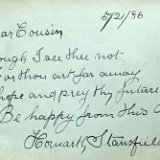 5/2/86
ar Cousin
ough I see thee not
or thou art far away
hope and prey thy future
Be happy from this
Howarth Stansfiel